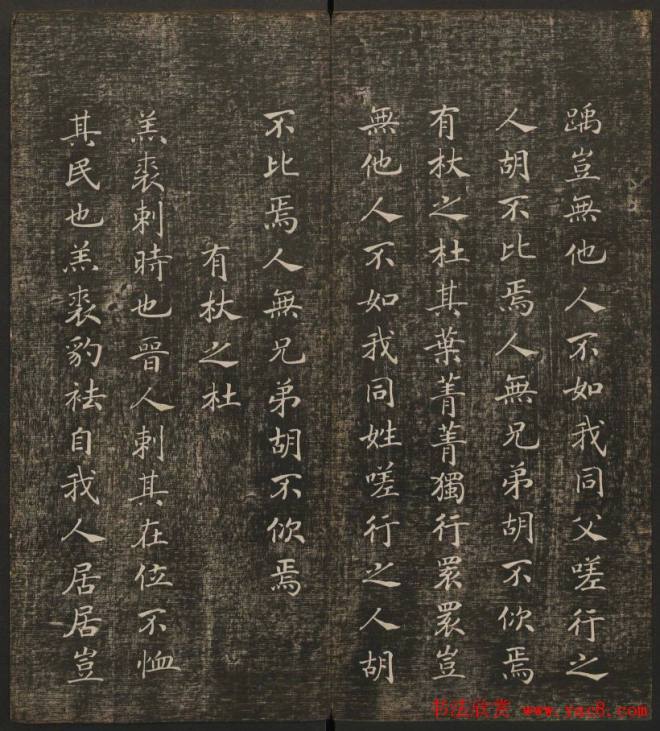 踽豈無他人不如我同父嗟行之
人胡不比焉人無兄弟胡不佽焉
有杕之杜其葉菁菁獨行睘睘豈
無他人不如我同姓嗟行之人胡
不比焉人無兄弟胡不佽焉
有杕之杜
羔裘刺時也晉人刺其在位不恤
其民也羔裘豹袪自我人居居豈
书法欣赏 www.yac8.com